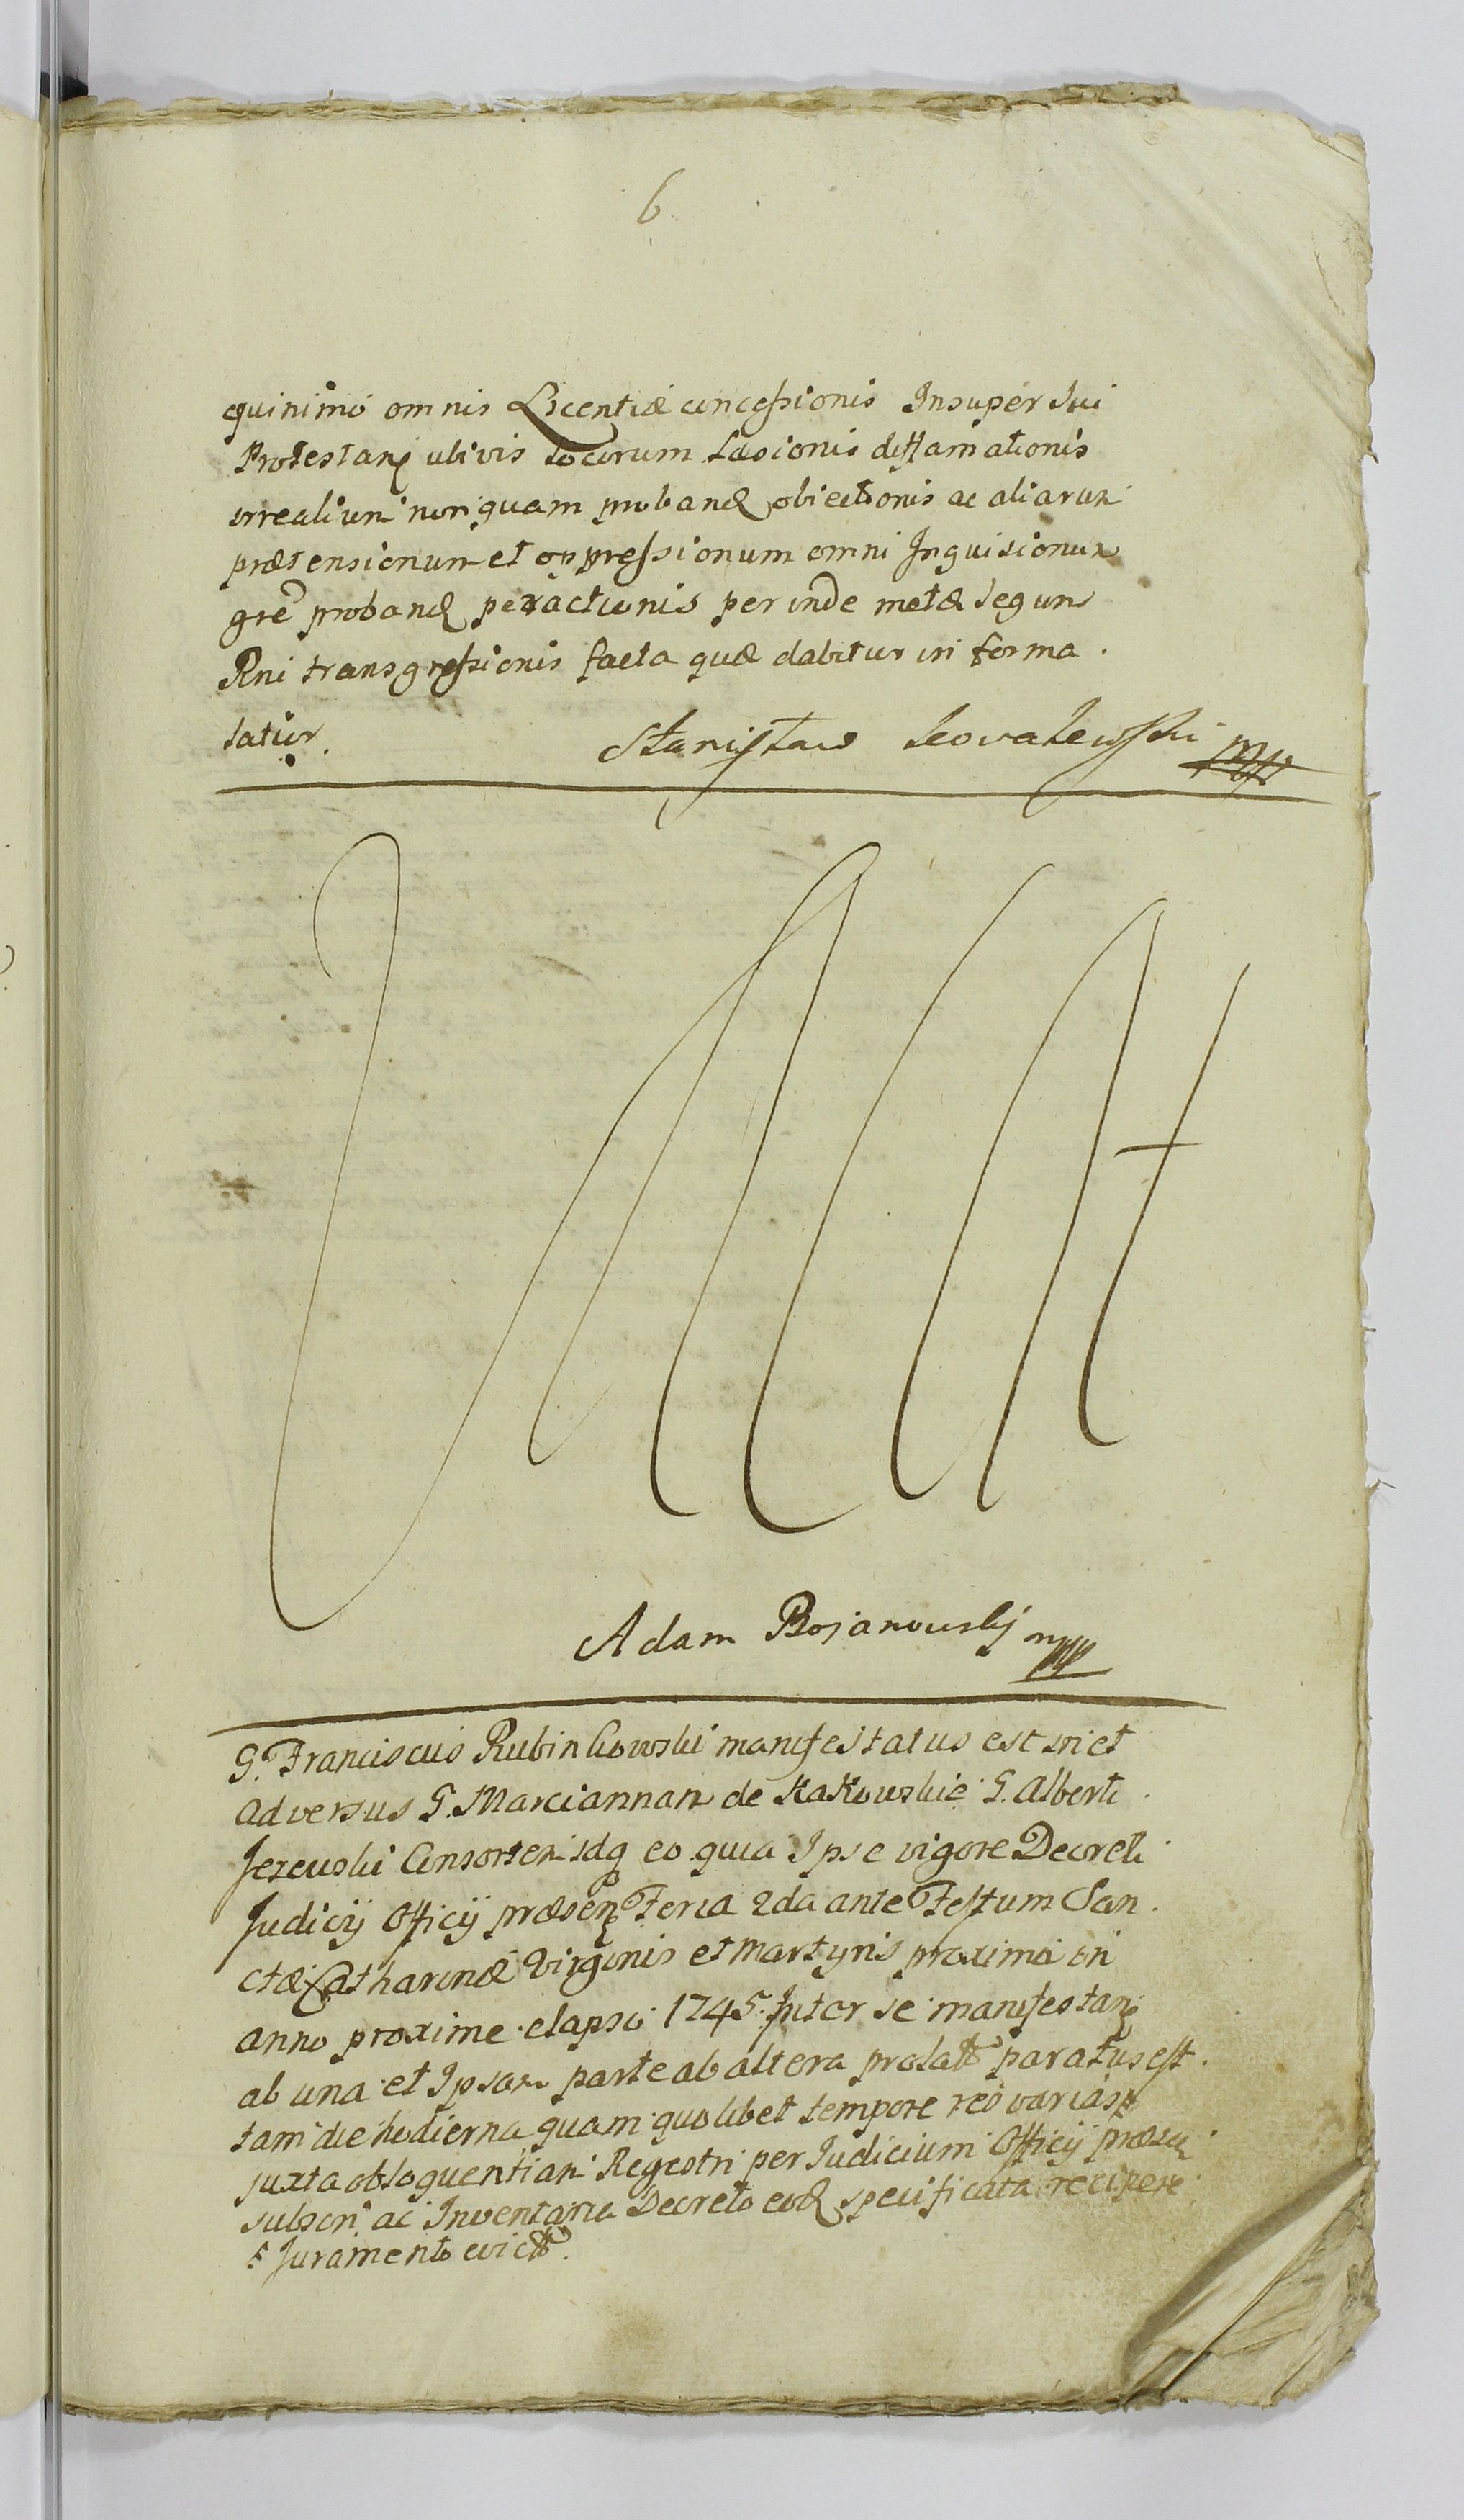 6
quinimo omnis Licentiæ concessionis Insuper sui
Protestanꝭ ubivis locorum Læsionis diffamationis
irrealium nonquam proban obiectionis ac aliarum
prætensionum et oppressionum omni Inquisitionum
gre proban peractionis perinde metæ Legum
Rni transgressionis facta quæ dabitur in forma.
latior.
Stanisław Kowalewski mpp
Adam Bojanowskij mpp
G. Franciscus Rubinkowski manifestatus est in et
adversus G. Mariannam de Kakowskie G. Alberti
Jezewski Consortem idq eo quia Ipse vigore Decreti
Judicij Officij præsenꝭ Feria 2da ante Festum San
ctæ Catharinæ Virginis et Martyris proxima in
anno proxime elapso 1745. Inter se manifestanꝭ
ab una et Ipsam parte ab altera prolatt paratus est
tam die hodierna quam quolibet tempore res varias
juxta obloquentiam Regestri per Iudicium Officij præsen
subscri ac Inventaria Decreto eod specificata recipere
Juramento evict.